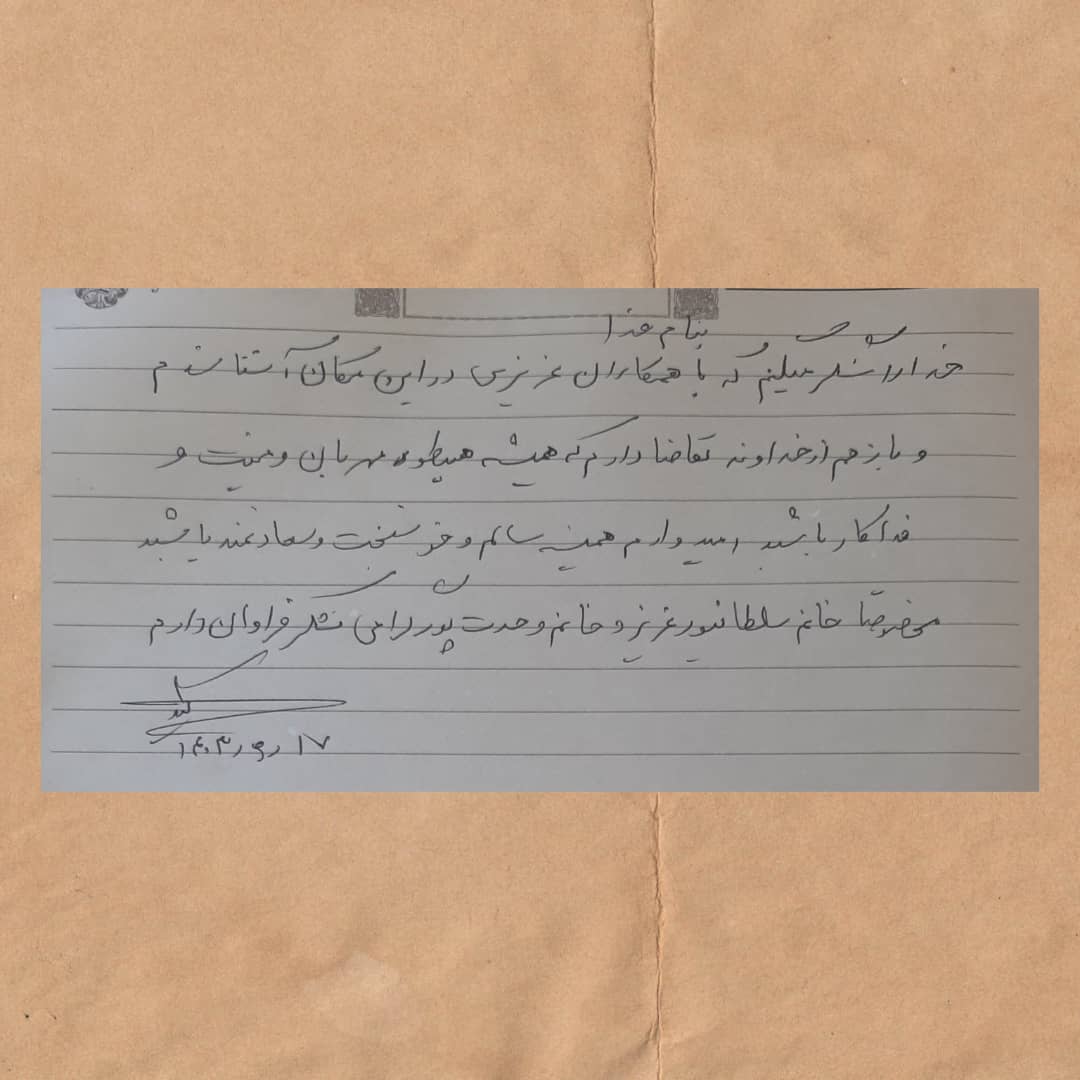 بنام خدا
خدا را شکر میکنم که با همکاران عزیزی در این مکان آشنا شدم
و باز هم از خداوند تقاضا دارم که همیشه همینطور مهربان و
فداکار باشید امیدوارم همیشه سالم و خوشبخت و سعادتمند باشید
مخصوصاً خانم سلطانپور عزیز و خانم وحدت پور گرامی تشکر فراوان دارم
۱۴۰۳٫۹٫۱۷